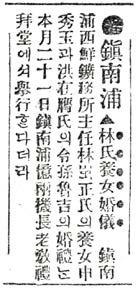 ◉鎭南浦 林氏養女婚儀 鎭南
浦西鮮鑛務所主任林正氏의養女申
秀玉과洪在膺氏의令孫魯吉의婚禮는
本月二十一日鎭南浦億兩機長老敎禮
拜堂에셔擧行ᄒᆞᆫ다더라